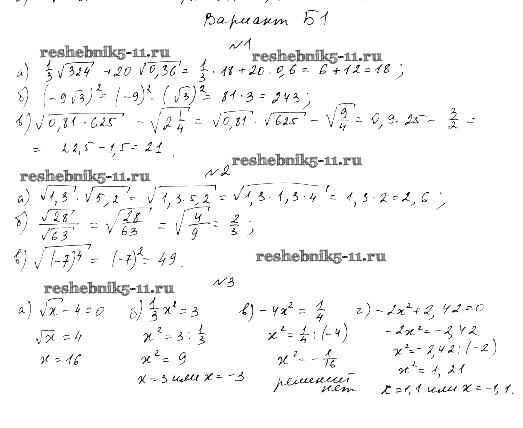 Вариант Б1
reshebnik5-11.ru
№1
reshebnik5-11.ru
а) 1/3 √324 + 20 √0,36 = 1/3 · 18 + 20 · 0,6 = 6 + 12 = 18;
б) (-9√3)² = (-9)² · (√3)² = 81 · 3 = 243;
в) √(0,81 · 625) - √(2 1/4) = √0,81 · √625 - √(9/4) = 0,9 · 25 - 3/2 =
= 22,5 - 1,5 = 21.
reshebnik5-11.ru
№2
reshebnik5-11.ru
а) √1,3 · √5,2 = √(1,3 · 5,2) = √(1,3 · 1,3 · 4) = 1,3 · 2 = 2,6;
б) √28/√63 = √(28/63) = √(4/9) = 2/3;
в) √((-7)⁴) = (-7)² = 49.
reshebnik5-11.ru
reshebnik5-11.ru
№3
а) √x - 4 = 0
√x = 4
x = 16
б) 1/3 x² = 3
x² = 3 : 1/3
x² = 9
x = 3 или x = -3
в) -4x² = 1/4
x² = 1/4 : (-4)
x² = -1/16
решений
нет
г) -2x² + 2,42 = 0
-2x² = -2,42
x² = -2,42 : (-2)
x² = 1,21
x = 1,1 или x = -1,1.